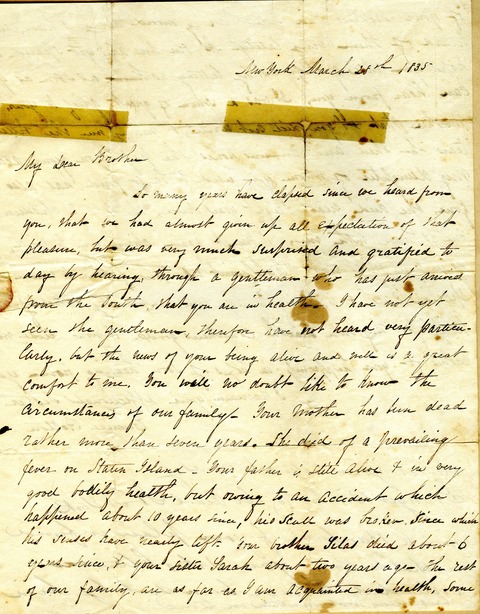 New York March 28th 1835
My Dear Brother
So many years have elapsed since we heard from
you, that we had almost given up all expectation of that
pleasure, but was very much surprised and gratified to
day by hearing, through a gentleman who has just arrived
from the South, that you are in health. I have not yet
seen the gentleman, therefore have not heard very particu-
larly, but the news of your being alive and well is a great
comfort to me. You will no doubt like to know the
circumstances of our family. Your Mother has been dead
rather more than seven years. She died of a prevailing
fever on Staten Island - Your father is still alive & in very
good bodily health, but owing to an accident which
happened about 10 years since, his Scull was broken, Since which
his senses have nearly left. Your brother Silas died about 6
years since, & your sister Sarah about two years ago - The rest
of our family, are as far as I am acquainted in health, some